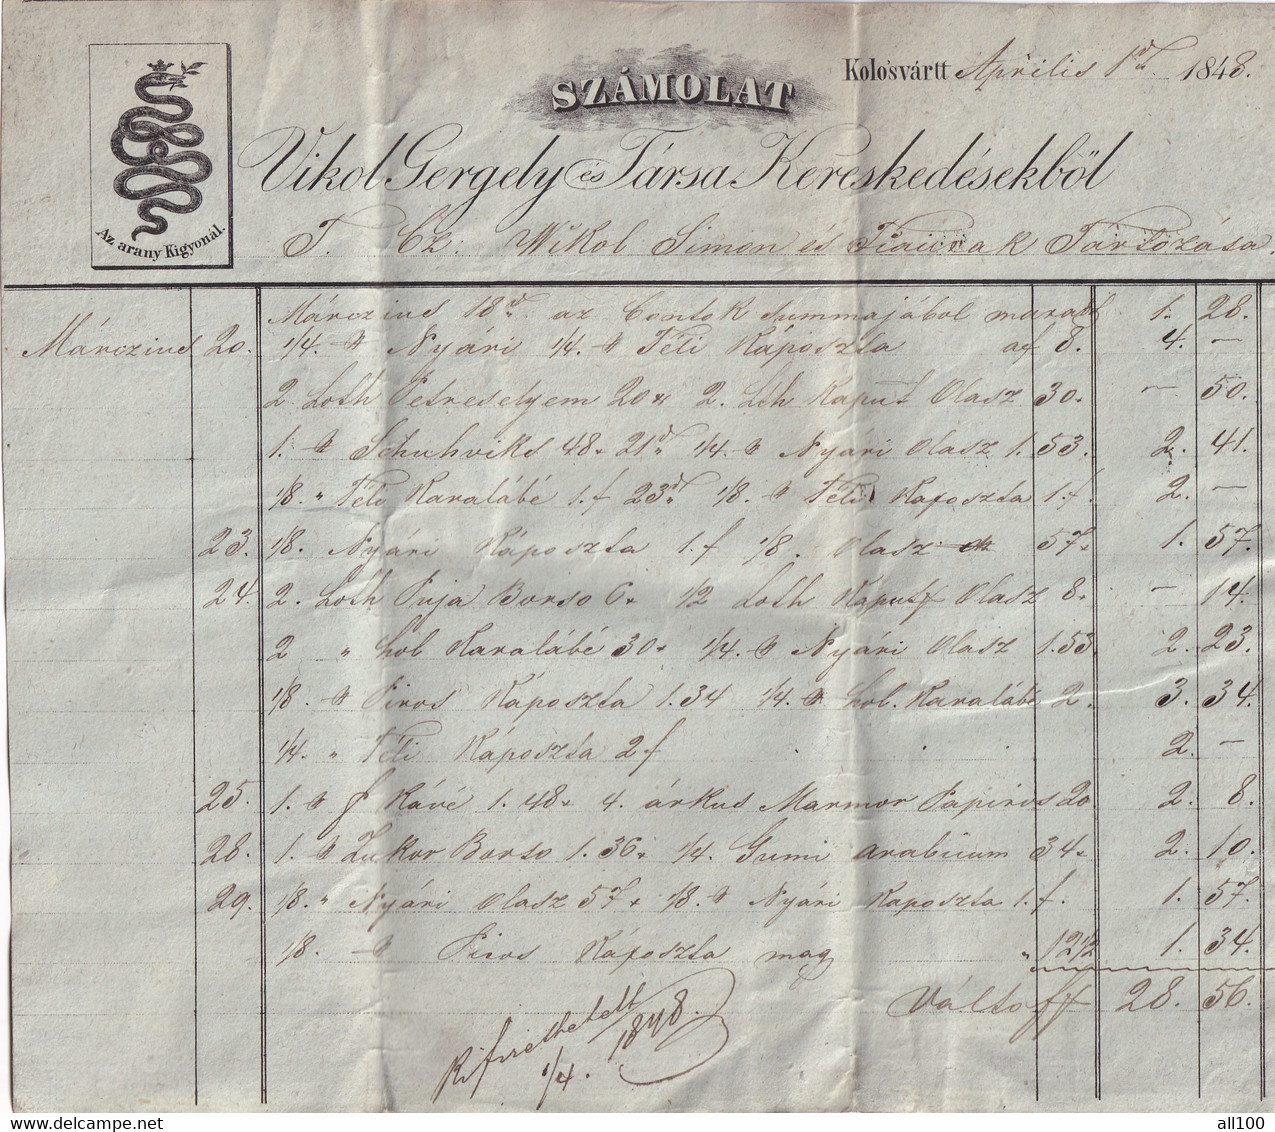 Az arany Kigyonál.
SZÁMOLAT
Kolo'svártt Április 1ső 1848.
Vikol Gergely és Társa Kereskedésekből
T. Cz: Wikol Simon és Tartozása.
Márczius 18n az Contok Summajából maradt 1. 28.
Márczius 20. 1/4. Nyári 1/4. Téli Káposzta af 8. 4. –
2 Loth Petreselyem 20x 2. Lth Kaput Olasz 30. – 50.
1. Schuhviks 48x 21n 1/4. Nyári Olasz 1.53. 2. 41.
1/8. " Téli Karalábé 1.f 23n 1/8. Téli Kaposzta 1.f. 2. –
23. 1/8. Nyári Káposzta 1.f 1/8. Olasz 57x 1. 57.
24. 2. Loth Puja Borso 6x 1/2 Loth Káput Olasz 8. – 14.
2 " hol Karalábé 30x 1/4. Nyári Olasz 1.53. 2. 23.
1/8. Piros Káposzta 1.34 1/4. hol. Karalábé 2. 3. 34.
1/4. " Téli Káposzta 2f 2. –
25. 1. f Kávé 1.48x 4. árkus Marmor Papiros 20 2. 8.
28. 1. Zukor Borso 1.36x 1/4. Gumi arabicum 34x 2. 10.
29. 1/8. " Nyári Olasz 57x 1/8. Nyári Kaposzta 1.f. 1. 57.
1/8. Piros Káposzta mag " 12 1/2 1. 34.
Válto ff 28. 56.
Kifizethetett
1/4. 1848.
delcampe.net
all100